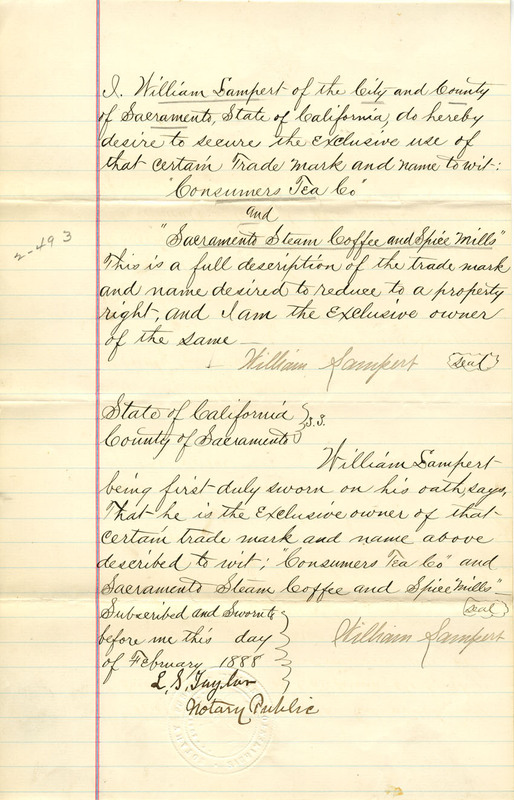 I, William Lampert of the City and County
of Sacramento, State of California, do hereby
desire to secure the exclusive use of
that certain Trade mark and name to wit:
"Consumers Tea Co"
and
"Sacramento Steam Coffee and Spice Mills"
This is a full description of the trade mark
and name desired to reduce to a property
right, and I am the exclusive owner
of the same
2-493
William Lampert (seal)
State of California } S.S.
County of Sacramento
William Lampert
being first duly sworn on his oath, says,
That he is the exclusive owner of that
certain trade mark and name above
described to wit; "Consumers Tea Co" and
Sacramento Steam Coffee and Spice Mills"
(seal)
Subscribed and Sworn to
before me this day
of February 1888
William Lampert
L. S. Taylor
Notary Public